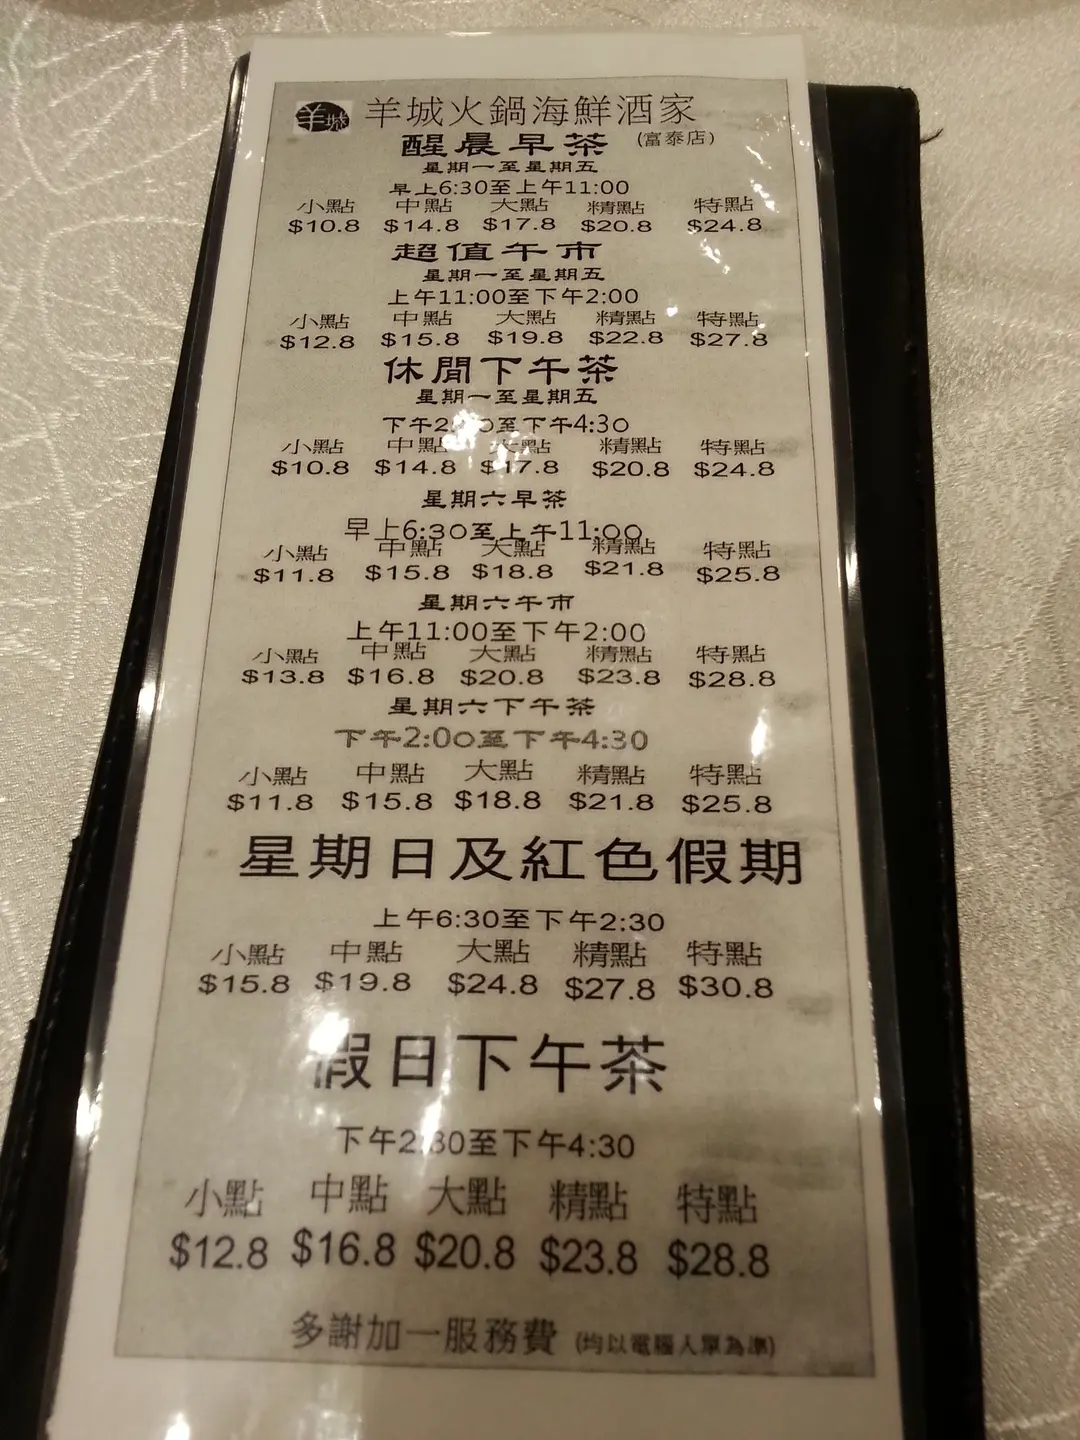 羊城 羊城火鍋海鮮酒家
醒晨早茶 (富泰店)
星期一至星期五
早上6:30至上午11:00
小點 中點 大點 精點 特點
$10.8 $14.8 $17.8 $20.8 $24.8
超值午市
星期一至星期五
上午11:00至下午2:00
小點 中點 大點 精點 特點
$12.8 $15.8 $19.8 $22.8 $27.8
休閒下午茶
星期一至星期五
下午2 0至下午4:30
小點 中點 大點 精點 特點
$10.8 $14.8 $17.8 $20.8 $24.8
星期六早茶
早上6:30至上午11:00
小點 中點 大點 精點 特點
$11.8 $15.8 $18.8 $21.8 $25.8
星期六午市
上午11:00至下午2:00
小點 中點 大點 精點 特點
$13.8 $16.8 $20.8 $23.8 $28.8
星期六下午茶
下午2:00至下午4:30
小點 中點 大點 精點 特點
$11.8 $15.8 $18.8 $21.8 $25.8
星期日及紅色假期
上午6:30至下午2:30
小點 中點 大點 精點 特點
$15.8 $19.8 $24.8 $27.8 $30.8
假日下午茶
下午2:30至下午4:30
小點 中點 大點 精點 特點
$12.8 $16.8 $20.8 $23.8 $28.8
多謝加一服務費 (均以電腦入單為準)